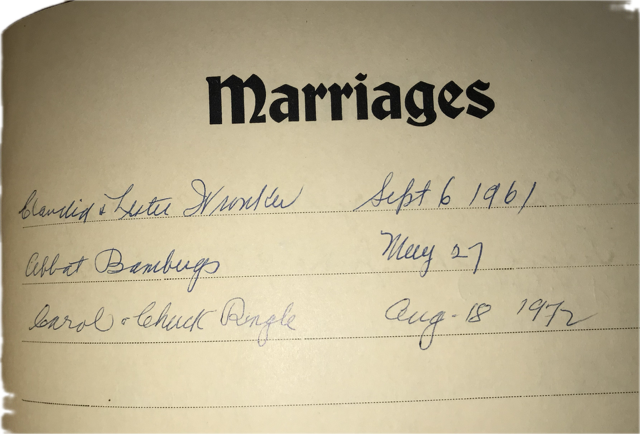 Marriages
Claudia & Lester Wronker Sept 6 1961
Abbat Bambergs May 27
Carol & Chuck Ringle Aug-18 1972